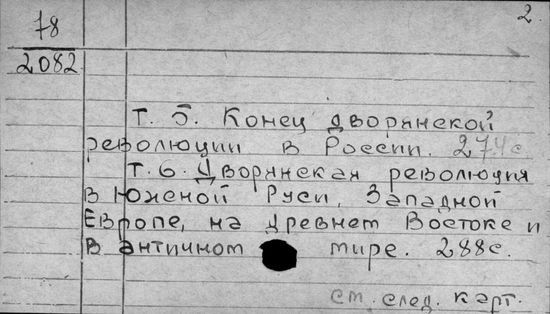 78
2.
2082
Т. 5. Конец дворянской
революции в России. 274с
Т. 6. Дворянская революция
в Южной Руси, Западной
Европе, на древнем Востоке и
в античном мире. 288с.
см. след. карт.